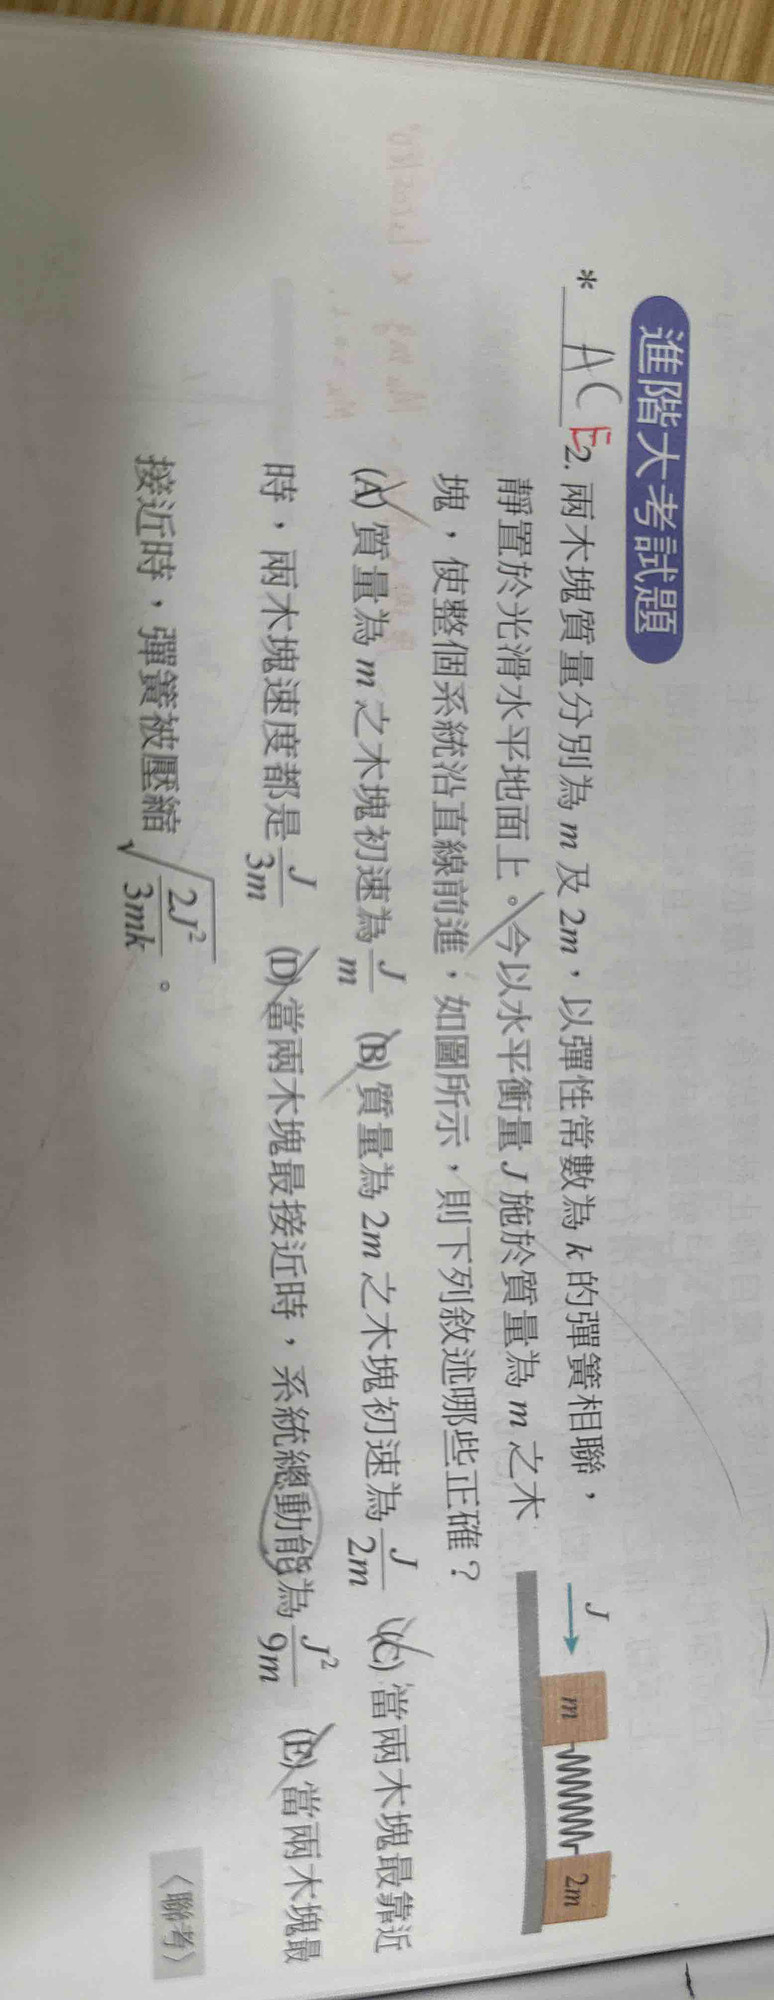 進階大考試題
* ACE 2. 兩木塊質量分別為 m 及 2m，以彈性常數為 k 的彈簧相聯，
靜置於光滑水平地面上。今以水平衝量 J 施於質量為 m 之木
塊，使整個系統沿直線前進，如圖所示，則下列敘述哪些正確？
J
m
2m
(A) 質量為 m 之木塊初速為 J/m (B) 質量為 2m 之木塊初速為 J/2m (C) 當兩木塊最靠近
時，兩木塊速度都是 J/3m (D) 當兩木塊最接近時，系統總動能為 J²/9m (E) 當兩木塊最
接近時，彈簧被壓縮 √(2J²/3mk)。
〈聯考〉